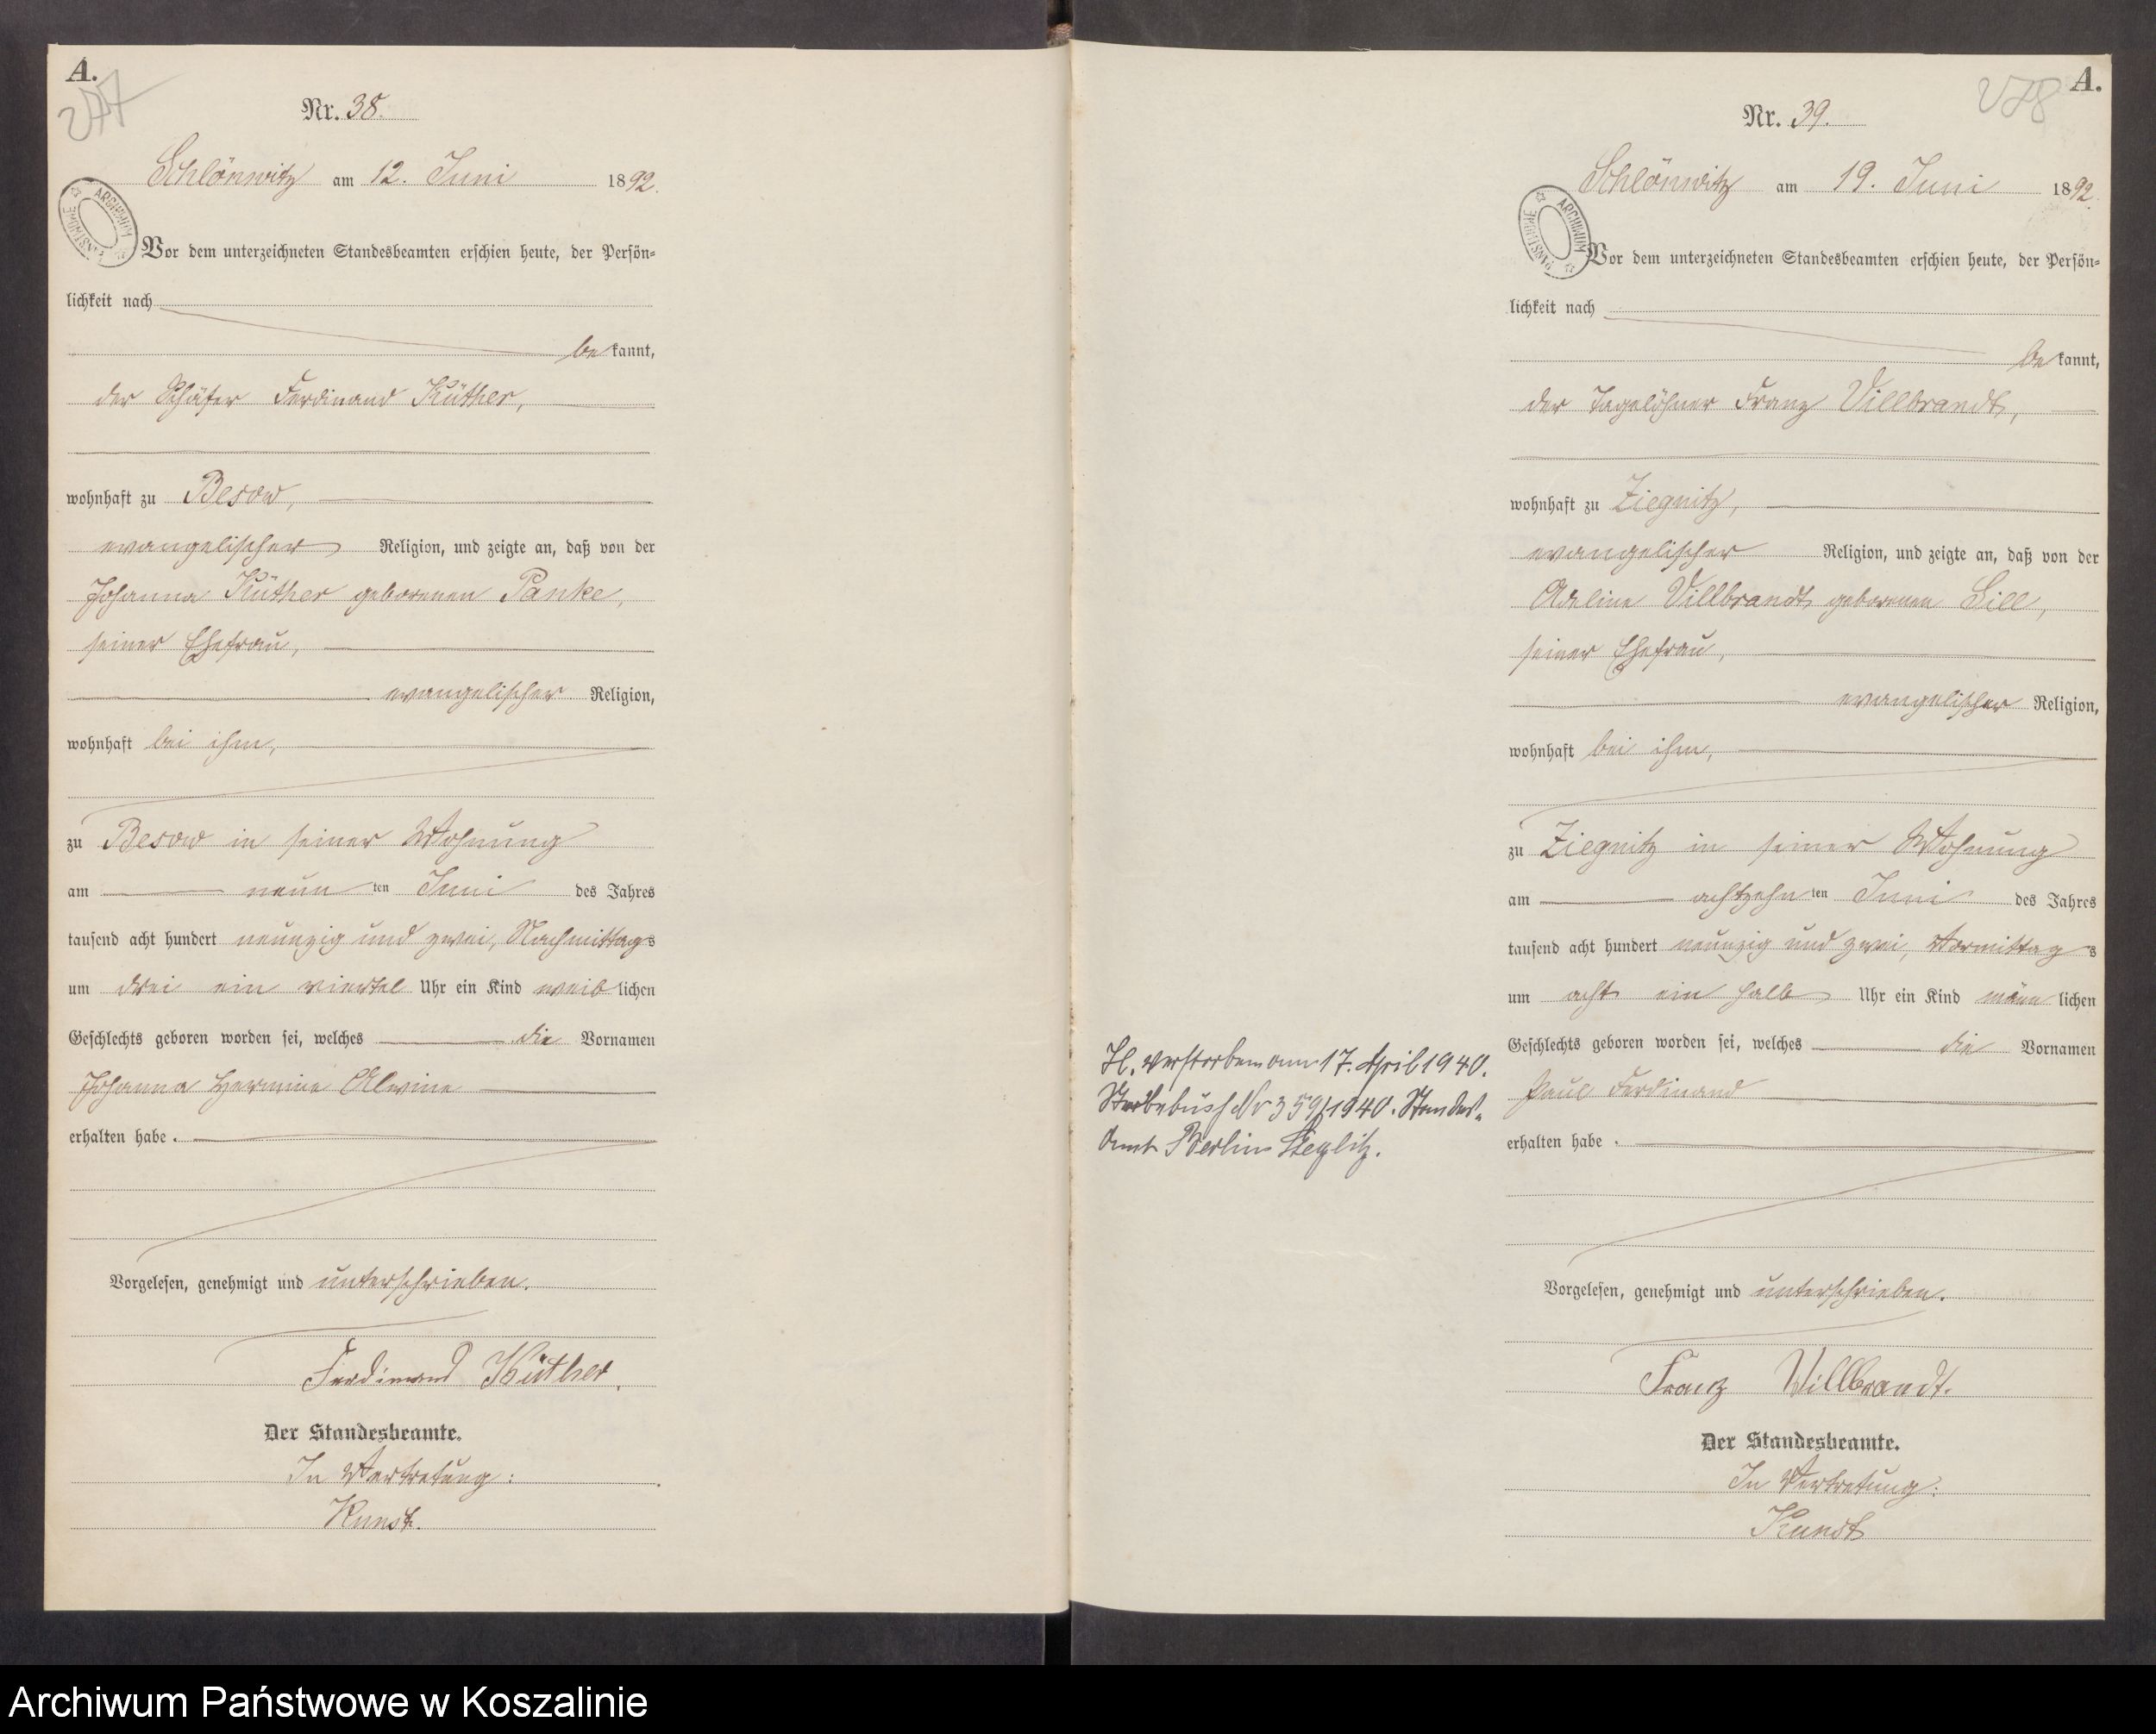 A.
277
Nr. 38.
Schlönwitz am 12. Juni 1892.
ARCHIWUM PAŃSTWOWE
Vor dem unterzeichneten Standesbeamten erschien heute, der Persön-
lichkeit nach
be kannt,
der Schäfer Ferdinand Küther,
wohnhaft zu Besow,
evangelischer Religion, und zeigte an, daß von der
Johanna Küther geborenen Panke,
seiner Ehefrau,
evangelischer Religion,
wohnhaft bei ihm,
zu Besow in seiner Wohnung
am neun ten Juni des Jahres
tausend acht hundert neunzig und zwei, Nachmittags
um drei ein viertel Uhr ein Kind weib lichen
Geschlechts geboren worden sei, welches die Vornamen
Johanna Hermine Alwine
erhalten habe.
Vorgelesen, genehmigt und unterschrieben.
Ferdinand Küther.
Der Standesbeamte.
In Vertretung:
Kundt.
A.
278
Nr. 39.
Schlönwitz am 19. Juni 1892.
ARCHIWUM PAŃSTWOWE
Vor dem unterzeichneten Standesbeamten erschien heute, der Persön-
lichkeit nach
be kannt,
der Tagelöhner Franz Villbrandt,
wohnhaft zu Ziegnitz,
evangelischer Religion, und zeigte an, daß von der
Adeline Villbrandt geborenen Sill,
seiner Ehefrau,
evangelischer Religion,
wohnhaft bei ihm,
zu Ziegnitz in seiner Wohnung
am achtzehn ten Juni des Jahres
tausend acht hundert neunzig und zwei, Vormittag s
um acht ein halb Uhr ein Kind männ lichen
Geschlechts geboren worden sei, welches die Vornamen
Paul Ferdinand
erhalten habe.
Vorgelesen, genehmigt und unterschrieben.
Franz Villbrandt.
Der Standesbeamte.
In Vertretung:
Kundt
verstorben am 17. April 1940.
Sterbebuch Nr 359/1940. Standes-
Amt Berlin Steglitz.
Archiwum Państwowe w Koszalinie